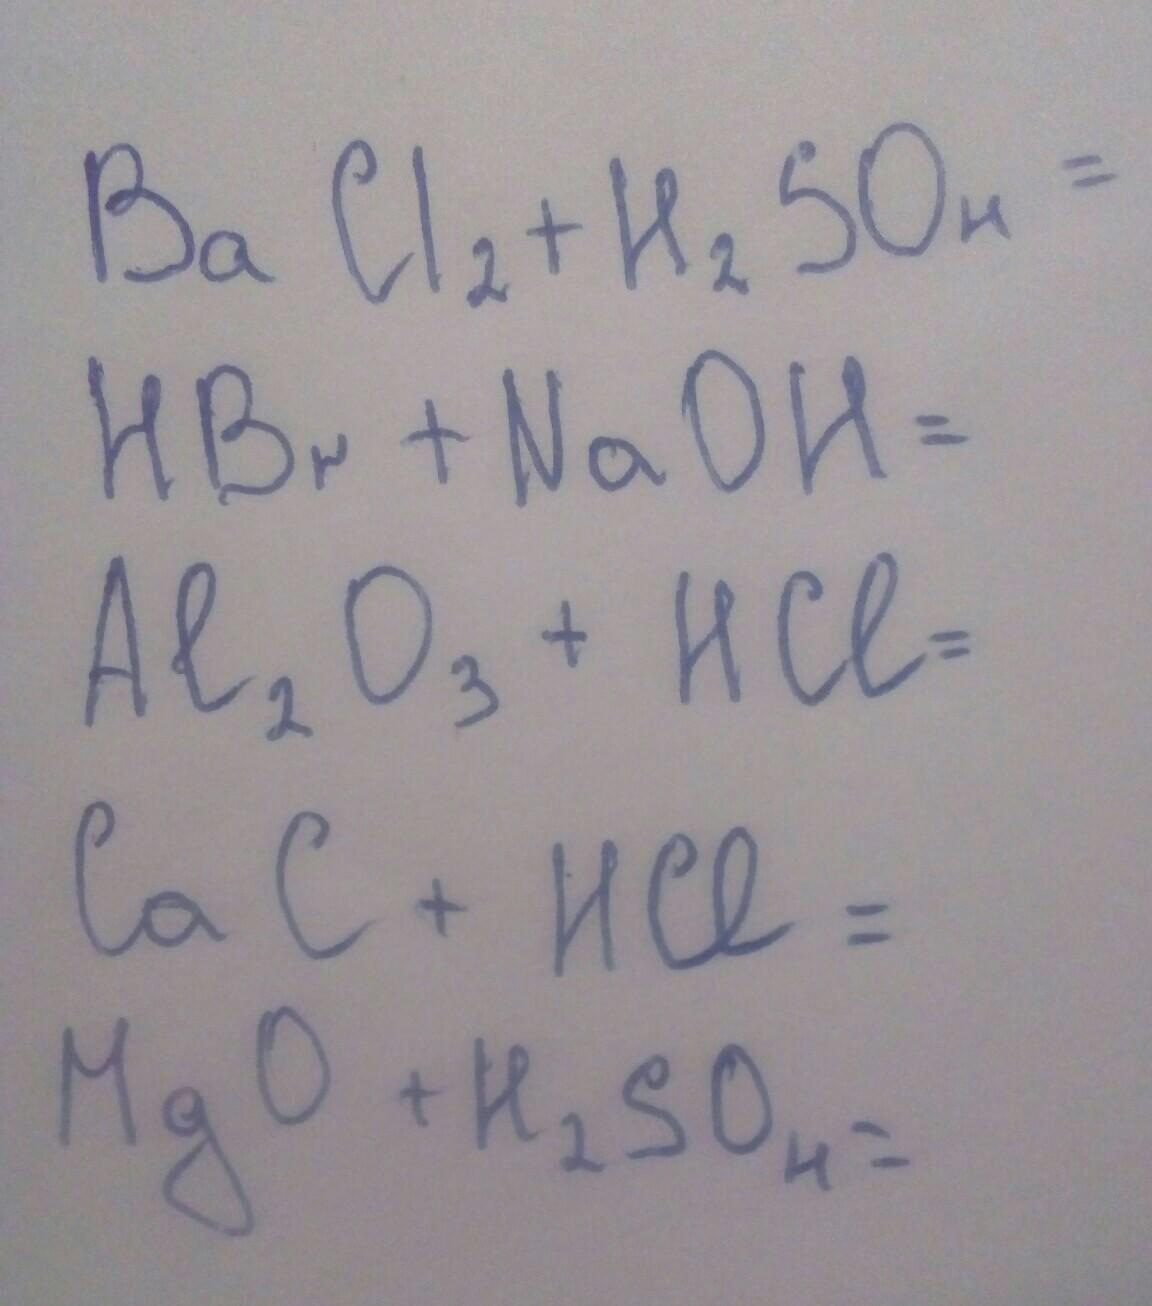 BaCl₂ + H₂SO₄ =
HBr + NaOH =
Al₂O₃ + HCl =
CaC + HCl =
MgO + H₂SO₄ =